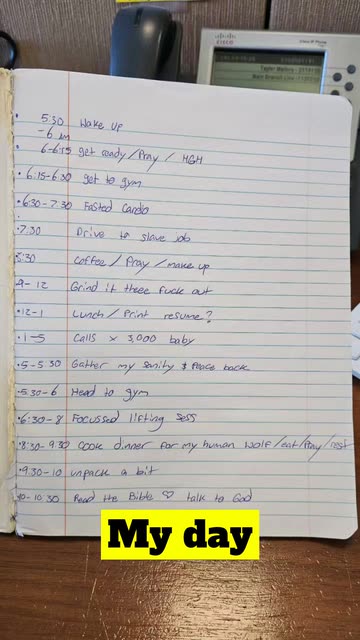 CISCO
Cisco IP Phone
• 5:30 Wake up
-6 am
• 6-6:15 get ready / Pray / HGH
• 6:15-6:30 get to gym
• 6:30-7:30 Fasted Cardio
• 7:30 Drive to slave job
8:30 Coffee / Pray / make up
• 9-12 Grind it theee fuck out
• 12-1 Lunch / Print resume?
• 1-5 Calls x 3,000 baby
• 5-5:30 Gatter my sanity & Peace back
• 5:30-6 Head to gym
• 6:30-8 Focussed lifting sess
• 8:30-9:30 Cook dinner for my human Wolf / eat / Pray / rest
• 9:30-10 unpack a bit
• 10-10:30 Read the Bible ♡ talk to God
My day